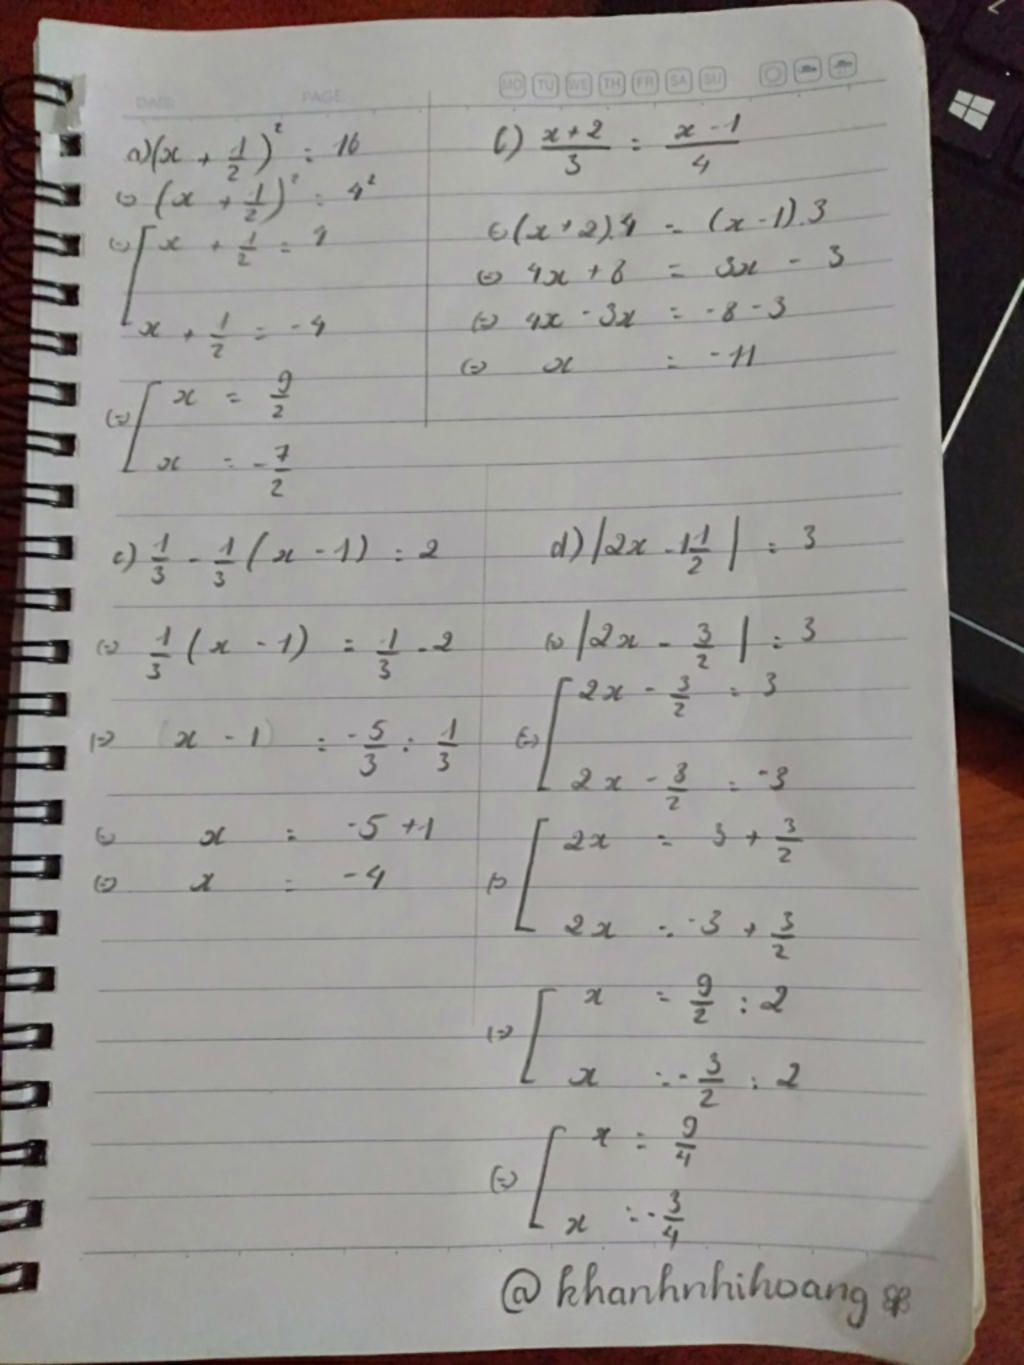 DATE: PAGE:
MO TU WE TH FR SA SU
a) (x + 1/2)² = 16
⇔ (x + 1/2)² = 4²
⇔ [ x + 1/2 = 4
x + 1/2 = -4
⇔ [ x = 9/2
x = -7/2
b) (x+2)/3 = (x-1)/4
⇔ (x+2).4 = (x-1).3
⇔ 4x + 8 = 3x - 3
⇔ 4x - 3x = -8 - 3
⇔ x = -11
c) 1/3 - 1/3 (x - 1) = 2
⇔ 1/3 (x - 1) = 1/3 - 2
⇔ (x - 1) = -5/3 : 1/3
⇔ x = -5 + 1
⇔ x = -4
d) |2x - 1 1/2| = 3
⇔ |2x - 3/2| = 3
⇔ [ 2x - 3/2 = 3
2x - 3/2 = -3
⇔ [ 2x = 3 + 3/2
2x = -3 + 3/2
⇔ [ x = 9/2 : 2
x = -3/2 : 2
⇔ [ x = 9/4
x = -3/4
@khanhnhihoang